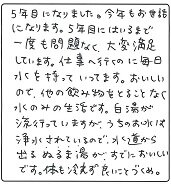 5年目になりました。今年もお世話
になります。5年目にはいるまで
一度も問題なく、大変満足
しています。仕事へ行くのに毎日
水を持っていってます。おいしい
ので、他の飲み物をとることなく
水のみの生活です。白湯が
流行っていますが、うちのお水は
浄水されているので、水道から
出るぬるま湯が、すでにおいしい
です。体も冷えず良いことづくめ。